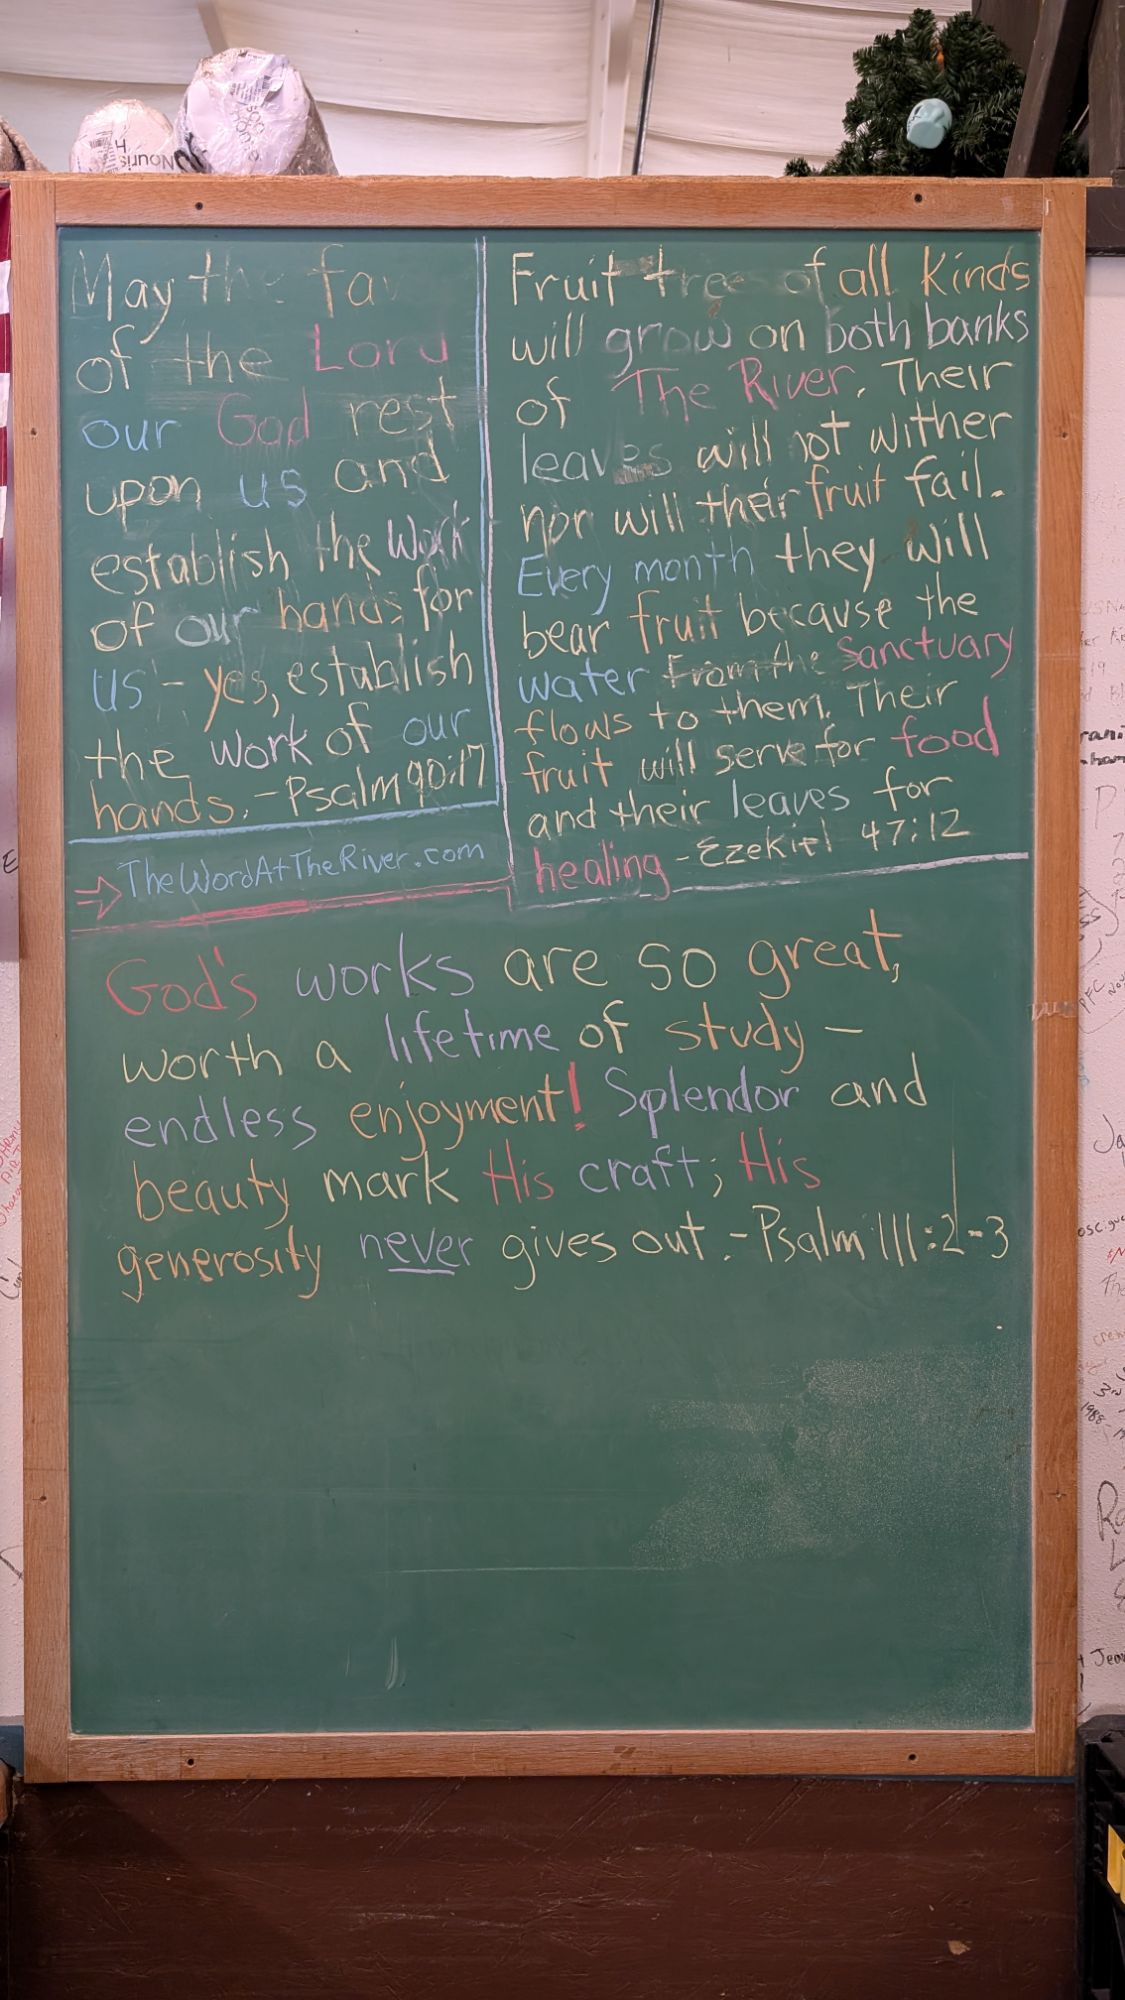 May the fav
of the Lord
our God rest
upon us and
establish the work
of our hands for
us - yes, establish
the work of our
hands. - Psalm 90:17
⇒ TheWordAtTheRiver.com
Fruit trees of all kinds
will grow on both banks
of The River. Their
leaves will not wither
nor will their fruit fail.
Every month they will
bear fruit because the
water from the Sanctuary
flows to them. Their
fruit will serve for food
and their leaves for
healing - Ezekiel 47:12
God's works are so great,
worth a lifetime of study -
endless enjoyment! Splendor and
beauty mark His craft; His
generosity never gives out. - Psalm 111:2-3